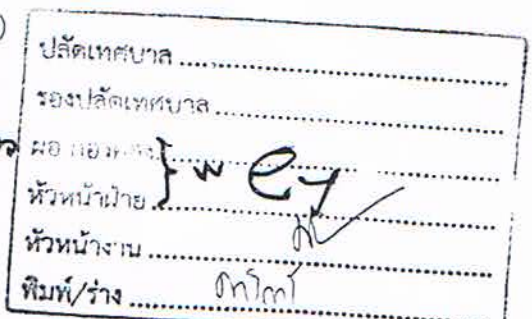 ปลัดเทศบาล ....................
รองปลัดเทศบาล ....................
ผอ.กองคลัง ....................
หัวหน้าฝ่าย ....................
หัวหน้างาน ....................
พิมพ์/ร่าง ....................